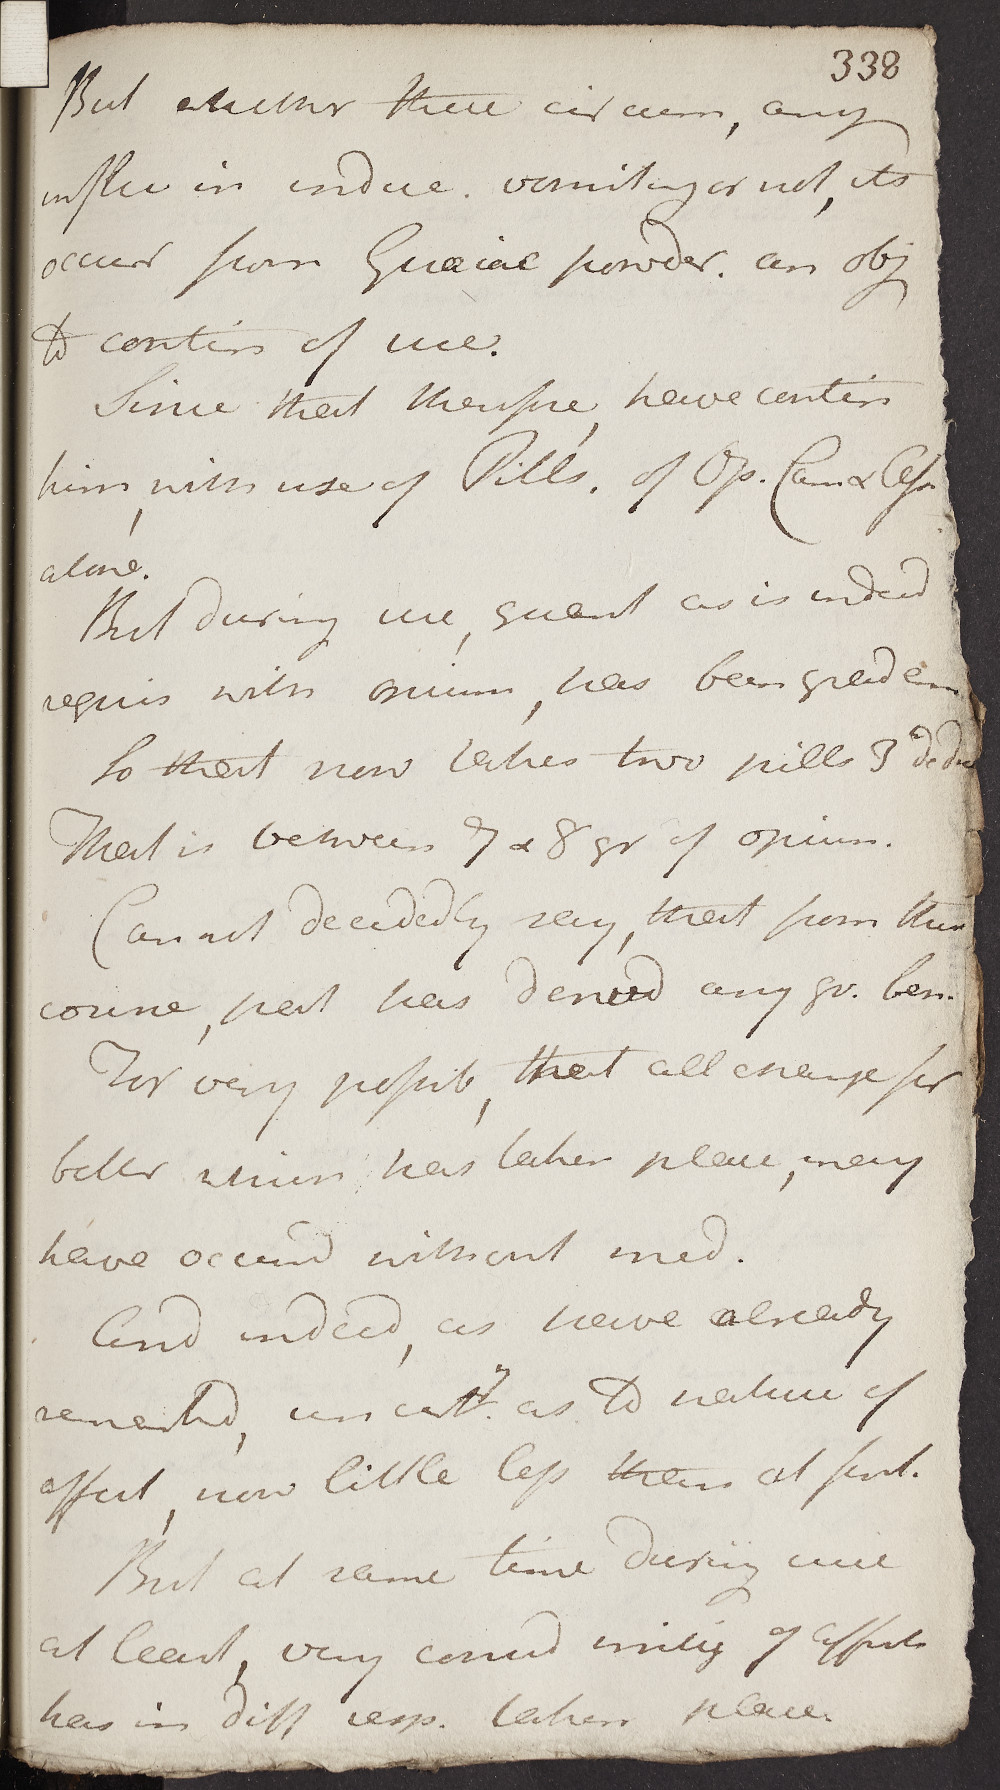 338
But whether these circum, any
influ in induc. vomiting or not, its
occurr from Guaiac powder. an obj
to contin of use.
Since that therefore, have contin
him, with use of Pills. of Op. Cam &
alone.
But during use, quant as is indeed
requis with opium, has been grad
So that now takes two pills 3
That is between 7 & 8 gr of opium.
Can not decidedly say, that from this
course, pat has derived any gr. ben.
For very possib, that all change for
better which has taken place, may
have occurrd without med.
And indeed, as have already
remarkd, uncertty. as to nature of
affect, now little less than at first.
But at same time during use
at least, very consid mitig of affect
has in diff resp. taken place.